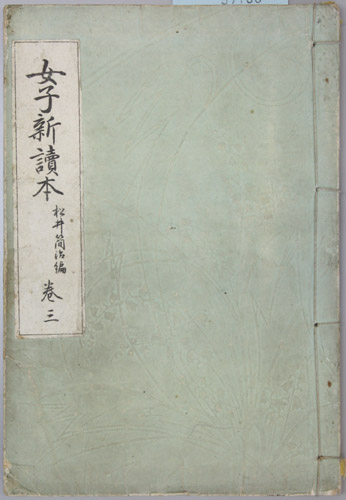 女子新讀本
松井簡治編
卷三